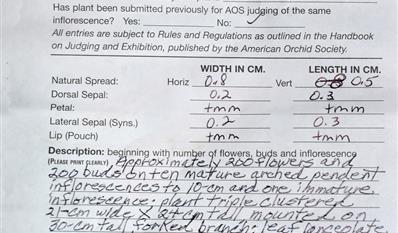 Has plant been submitted previously for AOS judging of the same
inflorescence? Yes: No: ✓
All entries are subject to Rules and Regulations as outlined in the Handbook
on Judging and Exhibition, published by the American Orchid Society.
WIDTH IN CM. LENGTH IN CM.
Natural Spread: Horiz 0.8 Vert 0.5
Dorsal Sepal: 0.2 0.3
Petal: tmm tmm
Lateral Sepal (Syns.) 0.2 0.3
Lip (Pouch) tmm tmm
Description: beginning with number of flowers, buds and inflorescence
(PLEASE PRINT CLEARLY) Approximately 200 flowers and
200 buds on ten mature arched pendent
inflorescences to 10-cm and one immature
inflorescence; plant triple clustered
21-cm wide X 24-cm tall mounted on
30-cm tall forked branch; leaf lanceolate